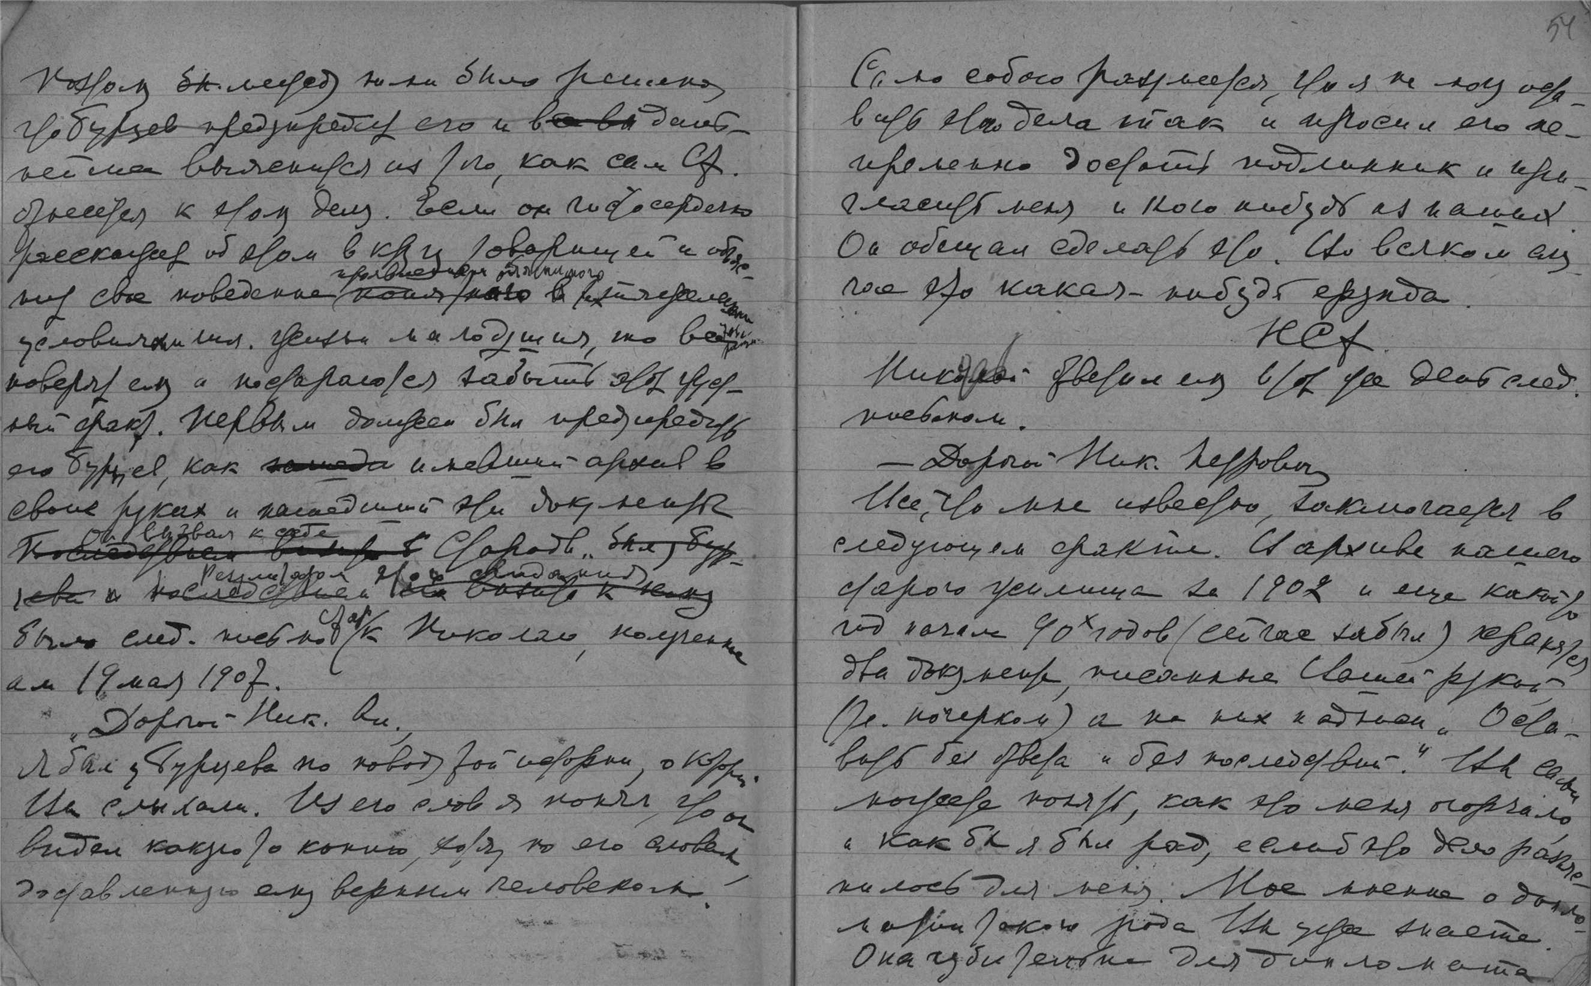 Поэтому был между ними было решено,
что Бурцев предупредит его и все вы даль-
нейшее выяснится из того, как сам Ст.
отнесется к этому делу. Если он чистосердечно
расскажет об этом в кругу товарищей и объяс-
нит свое поведение проявлением понятного в тех тяжелых
условиях жизни малодушия, то все
поверят ему и постараются забыть этот груст-
ный факт. Первым должен был предупредить
его Бурцев, как имевший архив в
своих руках и нашедший эти документы
Он вызвал к себе
Последствием визита Стародв. был у Бур-
цева и последствием результатом этого свидания
было след. письмо Стар. к Николаю, полученное
ам 19 мая 1907.
„Дорогой Ник. Ал.,
Я был у Бурцева по поводу той истории, о которой
Вы слыхали. Из его слов я понял, что он
видел какую-то копию, хотя, по его словам,
доставленную ему верным человеком.
54
Само собою разумеется, что я не могу оста-
вить это дела так и просил его не-
пременно достать подлинник и при-
гласить меня и кого нибудь из наших.
Он обещал сделать это. Во всяком слу-
чае это какая-нибудь ерунда.
НСт.
Николай ответил ему в тот же день след.
письмом.
— Дорогой Ник. Петрович,
Все, что мне известно, заключается в
следующем факте. В архиве нашего
старого училища за 1902 и еще какой то
год начала 90х годов (сейчас забыл) хранятся
два документа, писанные Вашей рукой
(т.е. почерком) а на них надписи „Оста-
вить без ответа и без последствий." Вы сами
можете понять, как это меня огорчало,
и как бы я был рад, если б это дело разъяс-
нилось для меня. Мое мнение о дипло-
матии такого рода Вы уже знаете.
Она губительна для дипломата